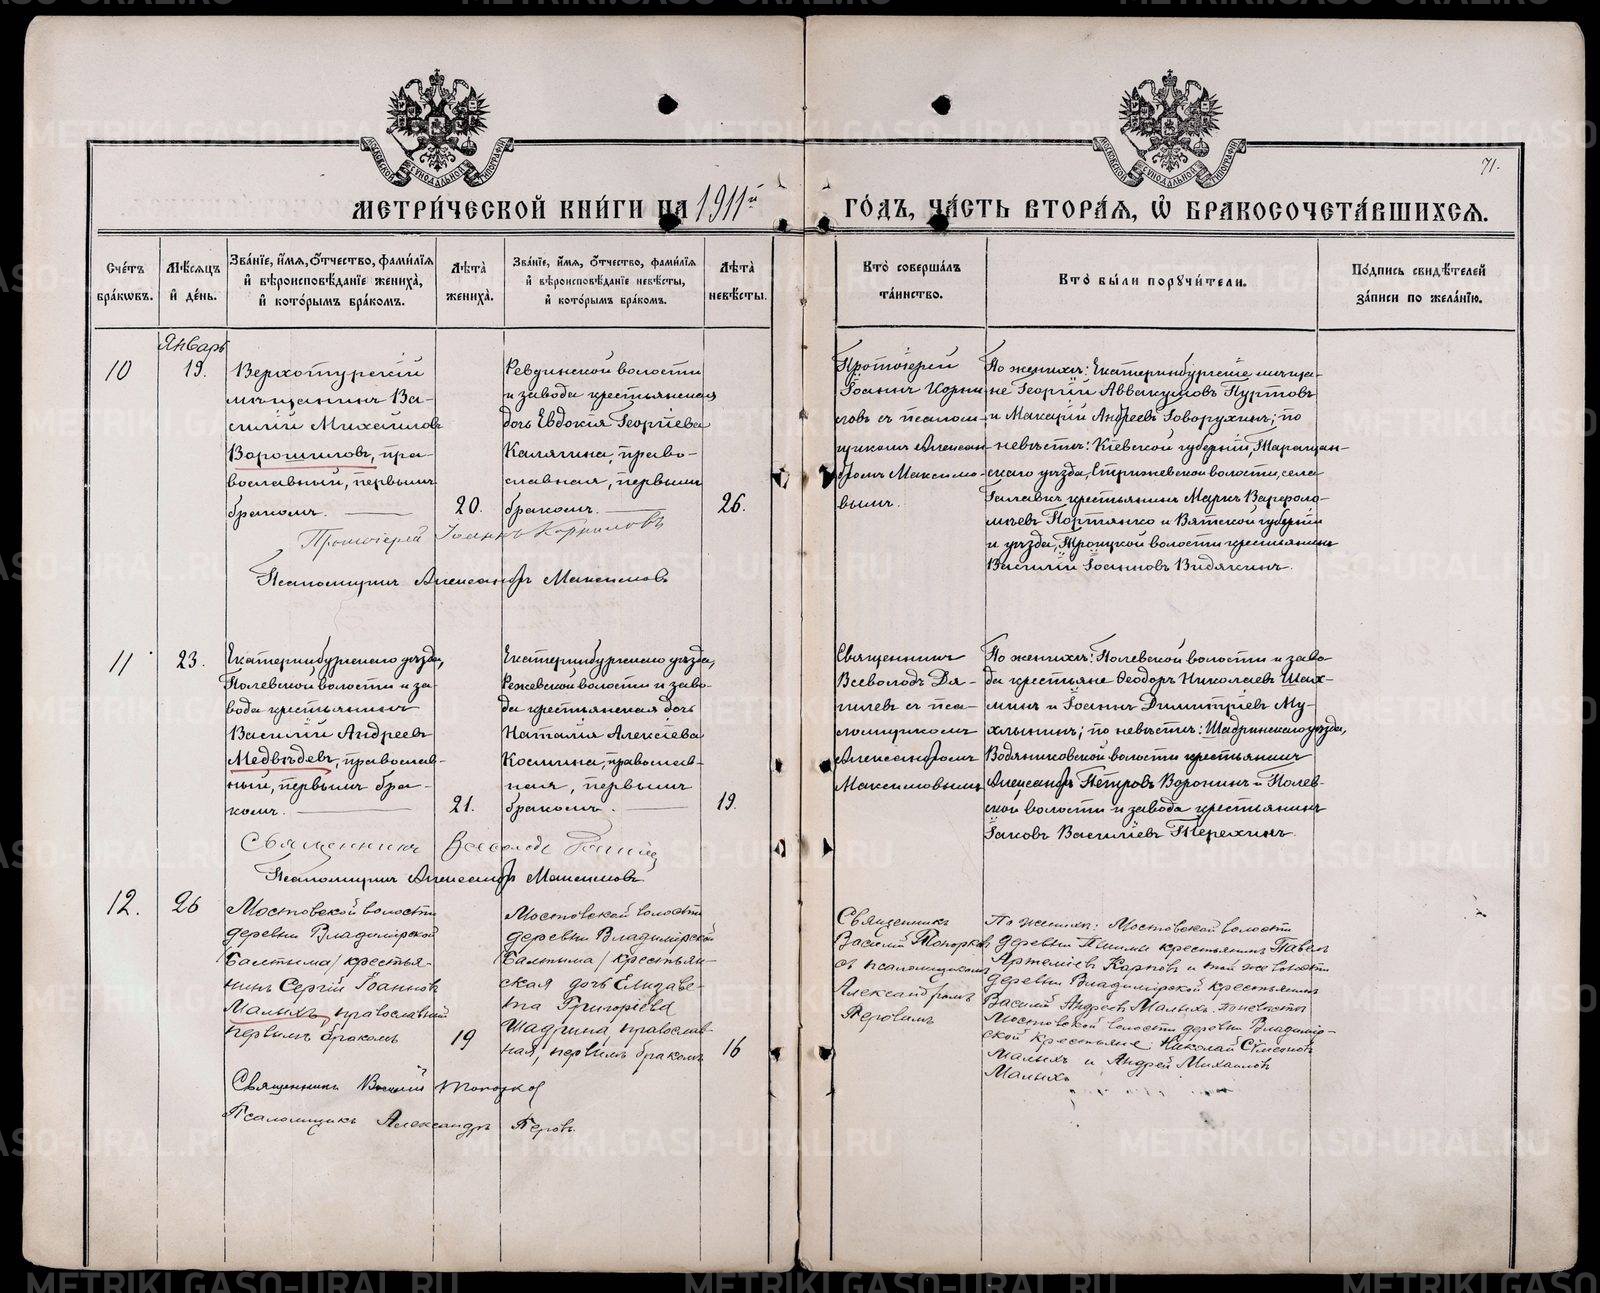 71.
МЕТРИ́ЧЕСКОЙ КНИ́ГИ НА 1911й ГО́ДЪ, ЧА́СТЬ ВТОРА́Я, Ѡ БРАКОСОЧЕТА́ВШИХСЯ.
Сче́тъ бра́кѡвъ.
Мѣ́сяцъ и҆ де́нь.
Зва́нїе, и҆́мя, ѻ҆́тчество, фами́лїя
и҆ вѣроисповѣ́данїе жениха̀,
и҆ кото́рымъ бра́комъ.
Лѣта̀ жениха̀.
Зва́нїе, и҆́мя, ѻ҆́тчество, фами́лїя
и҆ вѣроисповѣ́данїе невѣ́сты,
и҆ кото́рымъ бра́комъ.
Лѣта̀ невѣ́сты.
Кто̀ соверша́лъ
та́инство.
Кто̀ бы́ли поручи́тели.
По́дпись свидѣ́телей
за́писи по жела́нїю.
Январь
10
19.
Верхотурскій
мѣщанинъ Ва-
силій Михаиловъ
Ворошиловъ, пра-
вославный, первымъ
бракомъ.
20.
Ревдинской волости
и завода крестьянская
дочь Евдокія Георгіева
Калягина, право-
славная, первымъ
бракомъ.
26.
Протоіерей
Іоаннъ Корни-
ловъ съ псалом-
щикомъ Алексан-
дромъ Максимо-
вымъ.
По женихѣ: Екатеринбургскіе мѣща-
не Георгій Аввакумовъ Пуртовъ
и Макарій Андреевъ Говорухинъ; по
невѣстѣ: Кіевской губерніи, Таращан-
скаго уѣзда, Стрижевской волости, села
Галавки крестьянинъ Маркъ Варфоло-
мѣевъ Портянко и Вятской губерніи
и уѣзда, Троицкой волости крестьянинъ
Василій Іоанновъ Видякинъ.
Протоіерей Іоаннъ Корниловъ
Псаломщикъ Александръ Максимовъ
11
23.
Екатеринбургскаго уѣзда,
Полевской волости и за-
вода крестьянинъ
Василій Андреевъ
Медвѣдевъ, православ-
ный, первымъ бра-
комъ.
21.
Екатеринбургскаго уѣзда,
Режевской волости и заво-
да крестьянская дочь
Наталія Алексіева
Космина, православ-
ная, первымъ
бракомъ.
19.
Священникъ
Всеволодъ Дя-
гилевъ съ пса-
ломщикомъ
Александромъ
Максимовымъ
По женихѣ: Полевской волости и заво-
да крестьяне Ѳеодоръ Николаевъ Шах-
минъ и Іоаннъ Димитріевъ Му-
хлынинъ; по невѣстѣ: Шадринскаго уѣзда,
Водяниковской волости крестьянинъ
Александръ Петровъ Воронинъ и Полев-
ской волости и завода крестьянинъ
Іаковъ Василіевъ Терехинъ.
Священникъ Всеволодъ
Псаломщикъ Александръ Максимовъ
12.
26
Мостовской волости
деревни Владимірской
/Балтыма/ крестья-
нинъ Сергій Іоанновъ
Малыхъ, православный
первымъ бракомъ
19
Мостовской волости
деревни Владимірской
/Балтыма/ крестьян-
ская дочь Елизаве-
та Григоріева
Шадрина, православ-
ная, первымъ бракомъ
16
Священникъ
Василій Топорковъ
съ псаломщикомъ
Александромъ
Перовымъ
По женихѣ: Мостовской волости
деревни Пышмы крестьянинъ Павелъ
Артеміевъ Карповъ и той же волости
деревни Владимірской крестьянинъ
Василій Андреевъ Малыхъ. По невѣстѣ
Мостовской волости деревни Владимір-
ской крестьяне: Николай Симеоновъ
Малыхъ и Андрей Михаиловъ
Малыхъ
Священникъ Василій Топорковъ
Псаломщикъ Александръ Перовъ.
METRIKI.GASO-URAL.RU